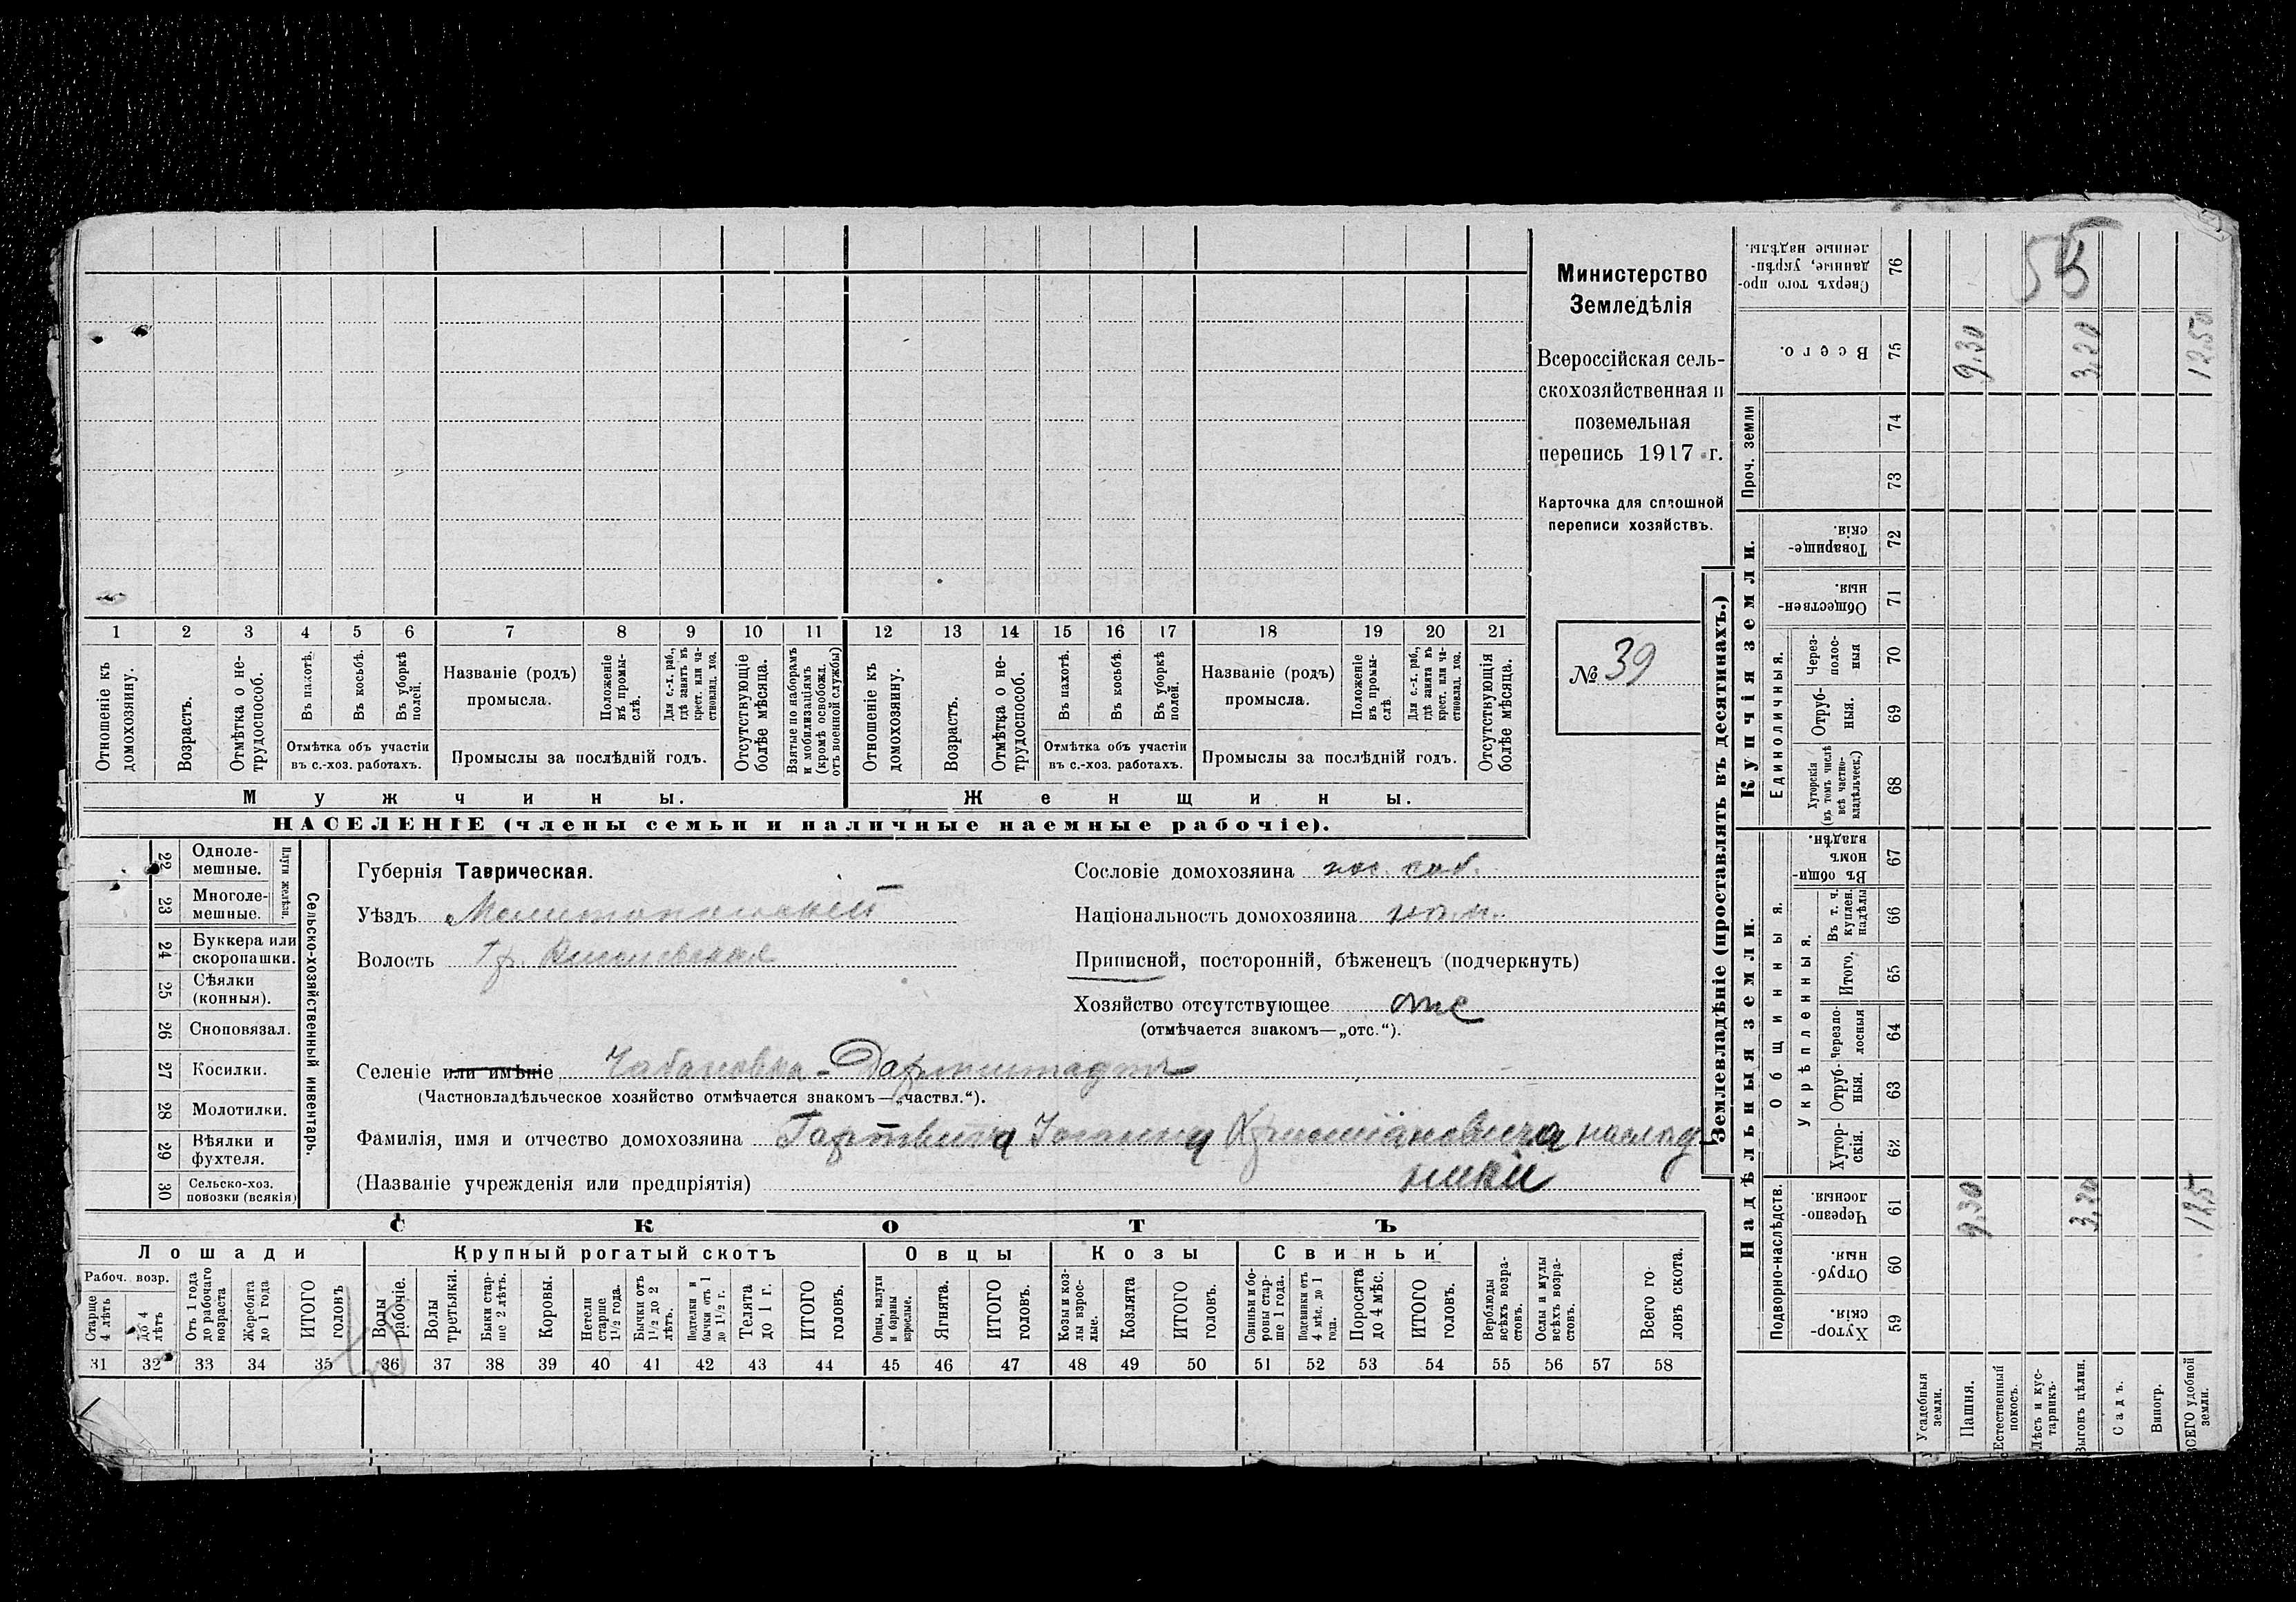 Министерство
Земледѣлія
Всероссійская сель-
скохозяйственная и
поземельная
перепись 1917 г.
Карточка для сплошной
переписи хозяйствъ.
№ 39
1 2 3 4 5 6 7 8 9 10 11 12 13 14 15 16 17 18 19 20 21
Отношеніе къ домохозяину.
Возрастъ.
Отмѣтка о не-трудоспособ.
Въ пахотѣ.
Въ косьбѣ.
Въ уборкѣ полей.
Отмѣтка объ участіи
въ с.-хоз. работахъ.
Названіе (родъ)
промысла.
Положеніе въ промы-слѣ.
Для с.-х. раб., гдѣ занятъ въ крест. или ча-стновлад. хоз.
Промыслы за послѣдній годъ.
Отсутствующіе болѣе мѣсяца.
Взятые по наборамъ и мобилизаціямъ (кромѣ освобожд. отъ военной службы)
Отношеніе къ домохозяину.
Возрастъ.
Отмѣтка о не-трудоспособ.
Въ пахотѣ.
Въ косьбѣ.
Въ уборкѣ полей.
Отмѣтка объ участіи
въ с.-хоз. работахъ.
Названіе (родъ)
промысла.
Положеніе въ промы-слѣ
Для с.-х. раб., гдѣ занята въ крест. или ча-стновлад. хоз.
Промыслы за послѣдній годъ.
Отсутствующія болѣе мѣсяца.
Мужчины.
Женщины.
НАСЕЛЕНІЕ (члены семьи и наличные наемные рабочіе).
Сельско-хозяйственный инвентарь.
Плуги желѣзн.
22 Одноле-мешные.
23 Многоле-мешные.
24 Буккера или скоропашки.
25 Сѣялки (конныя).
26 Сноповязал.
27 Косилки.
28 Молотилки.
29 Вѣялки и фухтеля.
30 Сельско-хоз. повозки (всякія)
Губернія Таврическая.
Уѣздъ Мелитопольскій
Волость Гр.
Сословіе домохозяина пос. соб.
Національность домохозяина нѣм.
Приписной, посторонній, бѣженецъ (подчеркнуть)
Хозяйство отсутствующее отс
(отмѣчается знакомъ—„отс.“).
Селеніе или имѣніе Чабановка - Дармштадтъ
(Частновладѣльческое хозяйство отмѣчается знакомъ—„частвл.“).
Фамилія, имя и отчество домохозяина Гартвига Іоганна Христіановича наслѣд
ники
(Названіе учрежденія или предпріятія)
СКОТЪ
Лошади
Крупный рогатый скотъ
Овцы
Козы
Свиньи
Рабоч. возр.
Старше 4 лѣтъ
до 4 лѣтъ
Отъ 1 года до рабочаго возраста
Жеребята до 1 года
ИТОГО головъ
Волы рабочіе.
Волы третьяки.
Быки стар-ше 2 лѣтъ.
Коровы.
Нетели старше 1½ года.
Бычки отъ 1½ до 2 лѣтъ.
Подтелки и бычки отъ 1 до 1½ г.
Телята до 1 г.
ИТОГО головъ.
Овцы, валухи и бараны взрослые.
Ягнята.
ИТОГО головъ.
Козы и коз-лы взрос-лые.
Козлята
ИТОГО головъ.
Свиньи и бо-ровы стар-ше 1 года.
Подсвинки отъ 4 мѣс. до 1 года.
Поросята до 4 мѣс.
ИТОГО головъ.
Верблюды всѣхъ возра-стовъ.
Ослы и мулы всѣхъ возра-стовъ.
Всего го-ловъ скота.
31 32 33 34 35 36 37 38 39 40 41 42 43 44 45 46 47 48 49 50 51 52 53 54 55 56 57 58
Землевладѣніе (проставлять въ десятинахъ.)
Надѣльныя земли.
Купчія земли.
Подворно-наслѣдств.
Общинныя.
Укрѣпленныя.
Единоличныя.
Проч. земли
Хутор-скія. 59
Отруб-ныя. 60
Черезпо-лосныя. 61
Хутор-скія. 62
Отруб-ныя. 63
Черезпо-лосныя 64
Итого. 65
Въ т. ч. куплен. надѣлы 66
Въ общи-номъ владѣн. 67
Хуторскія (въ томъ числѣ всѣ частно-владѣльческ.) 68
Отруб-ныя. 69
Через-полос-ныя 70
Обществен-ныя. 71
Товарище-скія. 72
73
74
Всего. 75
Сверхъ того про-данные, укрѣп-ленные надѣлы. 76
Усадебныя земли.
Пашня. 9,30 9,30
Естественный покосъ.
Лѣсъ и кус-тарникъ.
Выгонъ цѣлин. 3,20 3,20
Садъ.
Виногр.
ВСЕГО удобной земли. 12,5 12,50